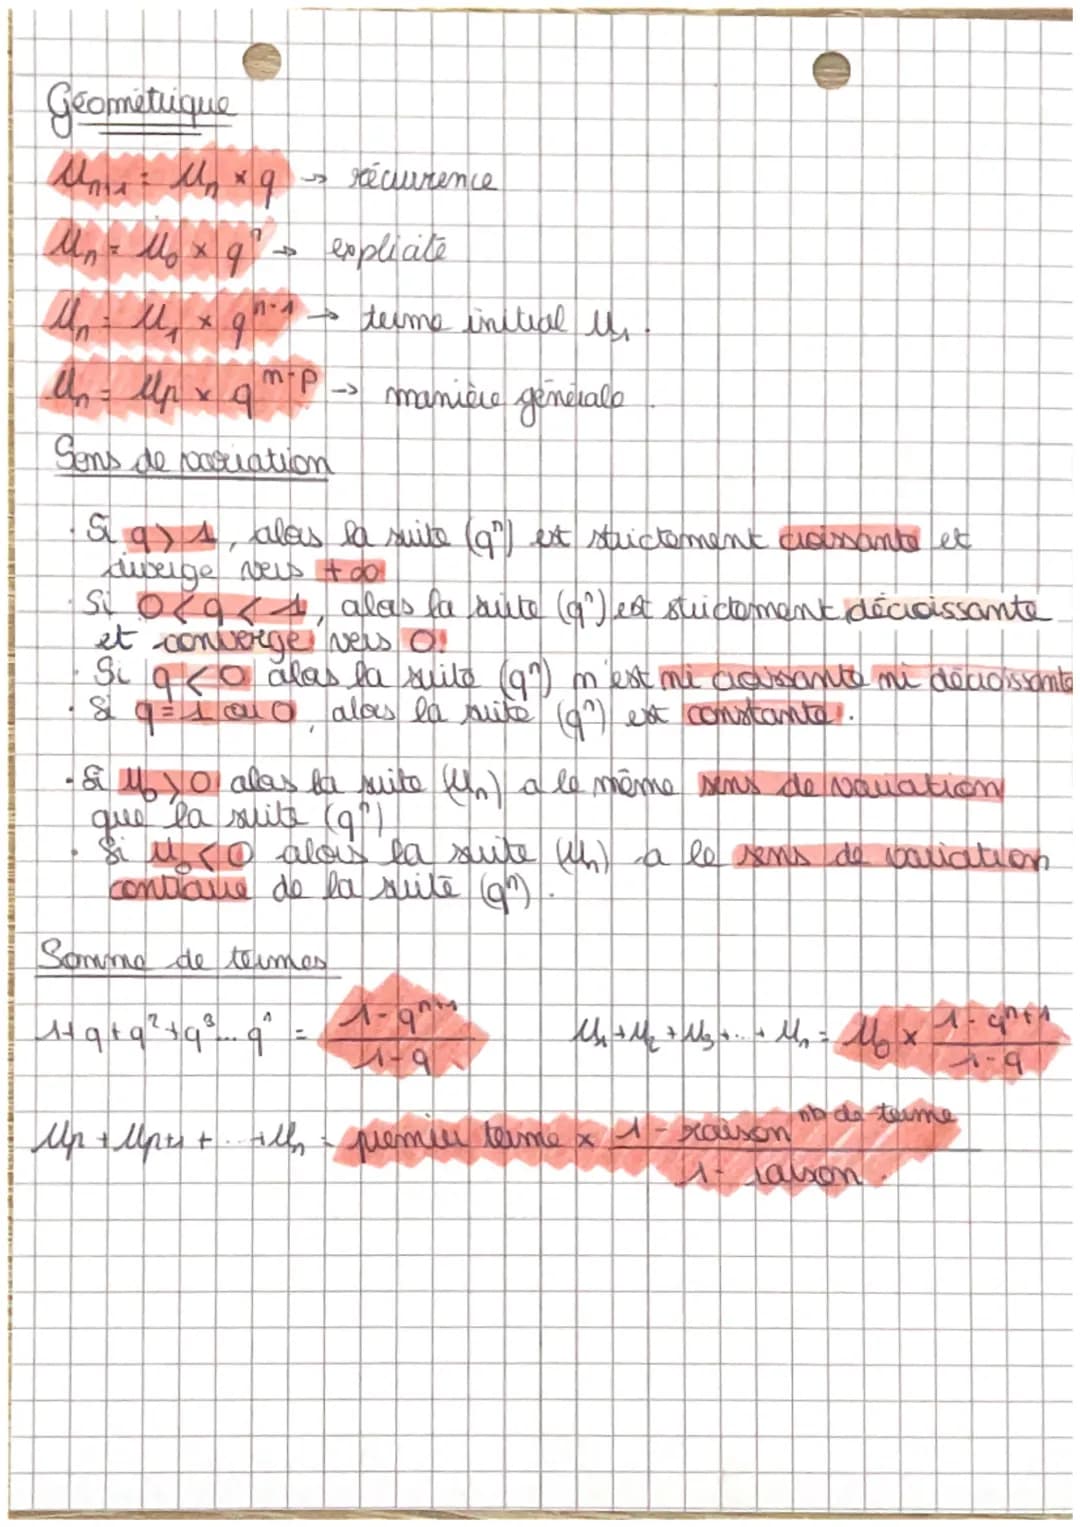 Géométrique
Un+1 = Un × q → récurrence
Un = U0 × qⁿ → explicite
Un = U1 × qⁿ⁻¹ → terme initial U1.
Un = Up × q ⁿ⁻ᵖ → manière générale.
Sens de variation
· Si q > 1, alors la suite (qⁿ) est strictement croissante et
diverge vers +∞
· Si 0 < q < 1, alors la suite (qⁿ) est strictement décroissante
et converge vers 0.
· Si q < 0 alors la suite (qⁿ) n'est ni croissante ni décroissante
· Si q = 1 ou 0, alors la suite (qⁿ) est constante.
· Si U0 > 0 alors la suite (Un) a le même sens de variation
que la suite (qⁿ)
· Si U0 < 0 alors la suite (Un) a le sens de variation
contraire de la suite (qⁿ).
Somme de termes
1+q+q²+q³...qⁿ = (1-qⁿ⁺¹)/(1-q) U1+U2+U3+...+Un = U0 × (1-qⁿ⁺¹)/(1-q)
Up + Up+1 + ...+Un = premier terme × (1 - raison^nb de terme)/(1 - raison).